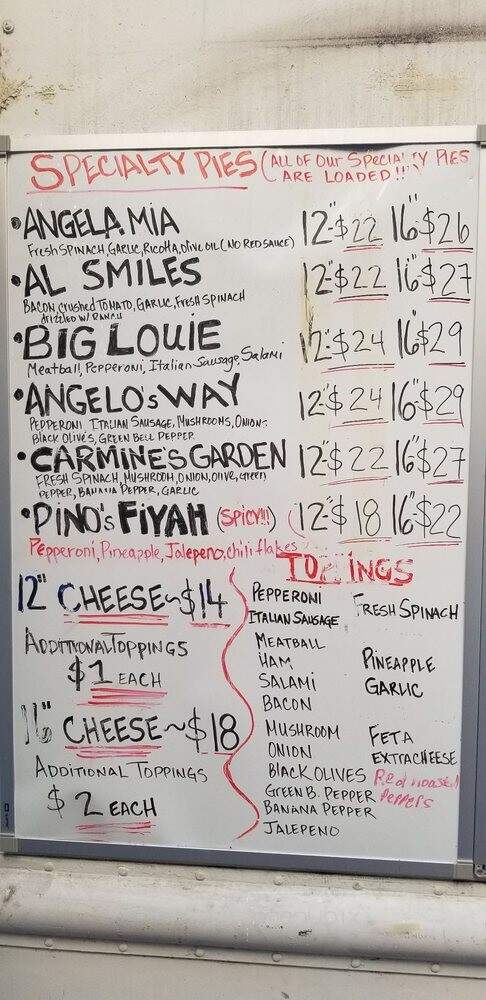 SPECIALTY PIES (ALL OF OUR SPECIALTY PIES
ARE LOADED!!)
•ANGELA MIA 12"$22 16"$26
Fresh SPINACH, GARLIC, RICOTTA, OLIVE OIL (NO RED SAUCE)
•AL SMILES 12"$22 16"$27
BACON, crushed TOMATO, GARLIC, FRESH SPINACH
drizzled w/ RANCH
•BIG LOUIE 12"$24 16"$29
Meatball, Pepperoni, Italian-Sausage, Salami
•ANGELO'S WAY 12"$24 16"$29
PEPPERONI, ITALIAN SAUSAGE, MUSHROOMS, ONIONS
BLACK OLIVE'S, GREEN BELL PEPPER
•CARMINE'S GARDEN 12"$22 16"$27
FRESH SPINACH, MUSHROOM, ONION, OLIVE, GREEN
PEPPER, BANANA PEPPER, GARLIC
•PINO'S FIYAH (SPICY!!!) 12"$18 16"$22
Pepperoni, Pineapple, Jalepeno, chili flakes
12" CHEESE~$14
ADDITIONAL TOPPINGS
$1 EACH
16" CHEESE~$18
ADDITIONAL TOPPINGS
$2 EACH
TOPPINGS
PEPPERONI
ITALIAN SAUSAGE
MEATBALL
HAM
SALAMI
BACON
MUSHROOM
ONION
BLACK OLIVES
GREEN B. PEPPER
BANANA PEPPER
JALEPENO
FRESH SPINACH
PINEAPPLE
GARLIC
FETA
EXTRA CHEESE
Red roasted
Peppers